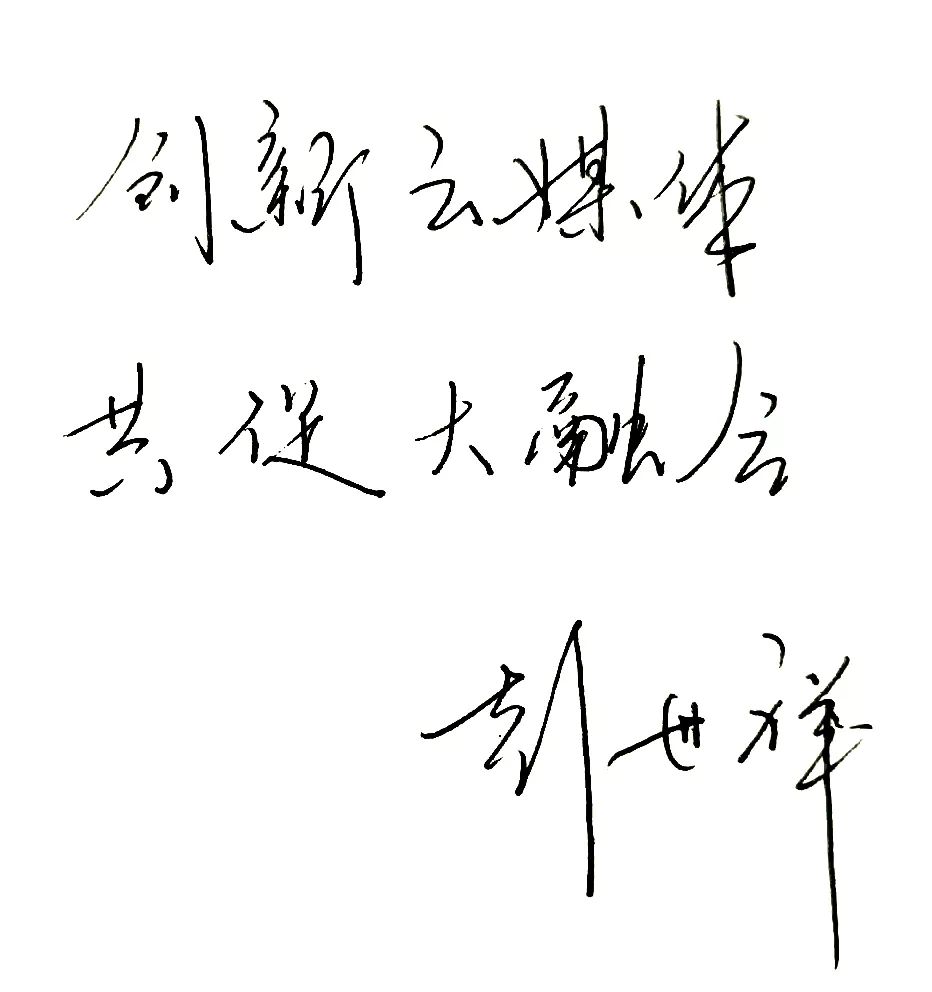 创新云媒体
共促大融合
彭世祥